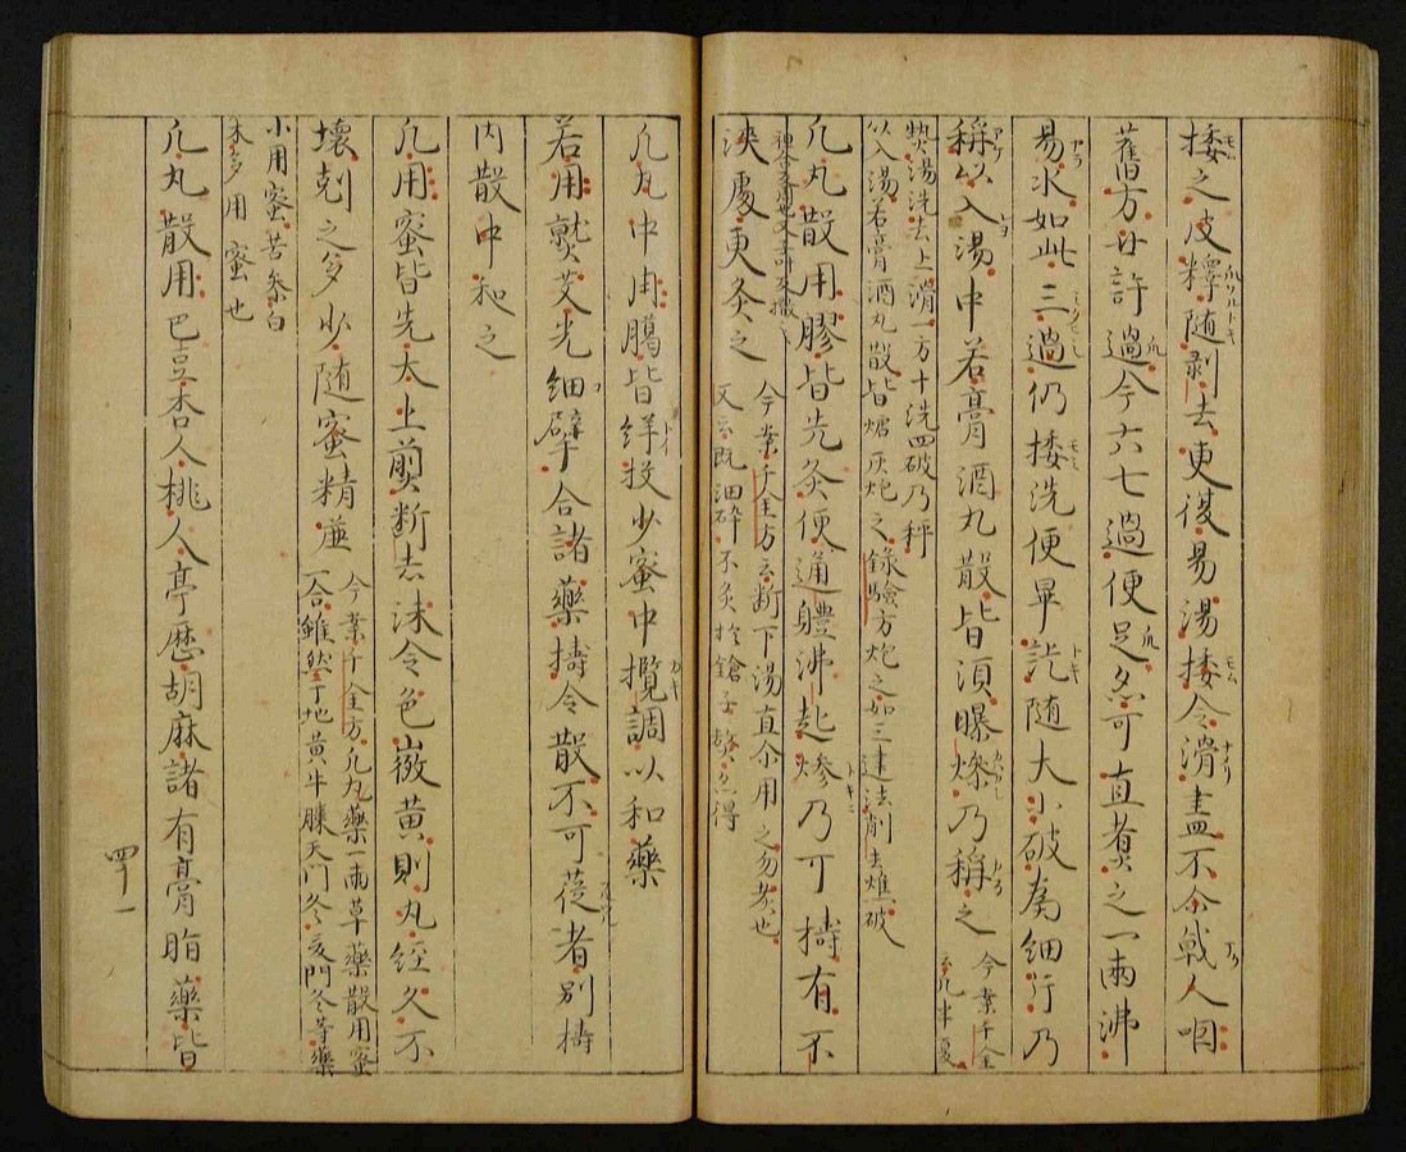 挼之皮釋随剥去更復易湯挼令滑盡不尓戟人咽
舊方廿許過今六七過便足亦可直煮之一兩沸
易水如此三過仍挼洗便畢訖随大小破為細行乃
稱以入湯中若膏酒丸散皆須曝燥乃稱之今案千金
云凡半夏
熱湯洗去上滑一方十洗四破乃秤
以入湯若膏酒丸散皆煻灰炮之錄驗方炮之如三建法削去燋破
凡丸散用膠皆先炙使通體沸起燥乃可擣有不
浹處更炙之今案千金方云断下湯直尓用之勿炙也
又云既細碎不炙於鎗子熬亦得
凡丸中用臈皆烊投少蜜中攬調以和藥
若用熟艾先細擘合諸藥擣令散不可蓰者別擣
内散中和之
凡用蜜皆先火上煎断去沫令色微黄則丸經久不
壞剋之多少随蜜精麁今案千金方凡丸藥一兩草藥散用蜜
一合雖然丁地黄牛膝天門冬麦門冬等藥
小用蜜苦参白
木多用蜜也
凡丸散用巴豆杏人桃人亭歷胡麻諸有膏脂藥皆
四十一